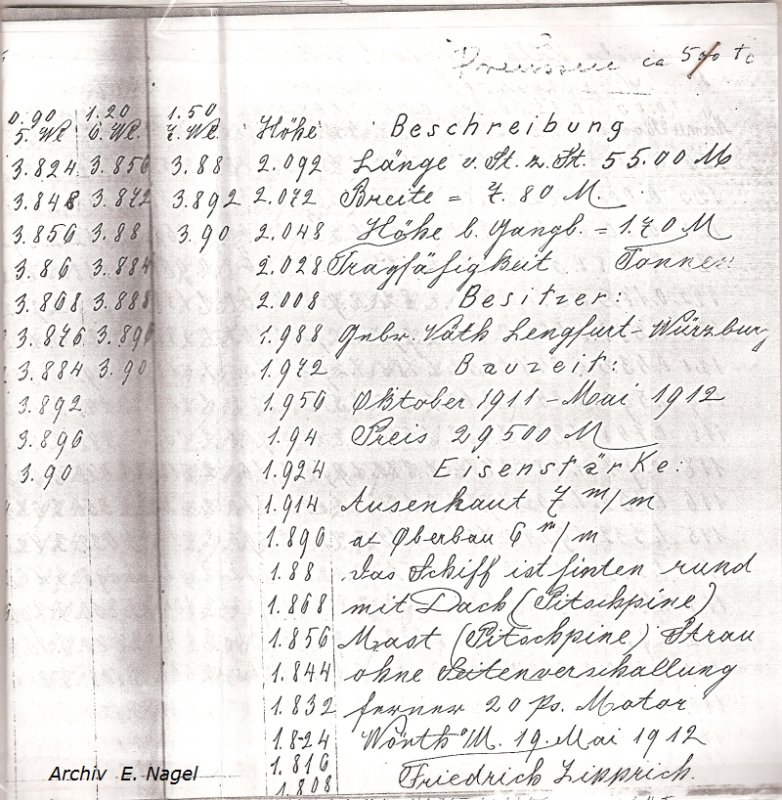 Preussen ca 500 To
0.90 1.20 1.50
5. Wl. 6. Wl. 7. Wl. Höhe Beschreibung
3.824 3.856 3.88 2.092 Länge v. St. z. St. 55.00 M
3.848 3.872 3.892 2.072 Breite = 7.80 M.
3.856 3.88 3.90 2.048 Höhe b. Gangb. = 1.70 M
3.86 3.884 2.028 Tragfäfigkeit Tonnen
3.868 3.888 2.008 Besitzer:
3.876 3.896 1.988 Gebr. Väth Lengfurt-Würzburg
3.884 3.90 1.972 Bauzeit:
3.892 1.956 Oktober 1911 – Mai 1912
3.896 1.94 Preis 29500 M
3.90 1.924 Eisenstärke:
1.914 Ausenhaut 7 m/m
1.896 Oberbau 6 m/m
1.88 Das Schiff ist hinten rund
1.868 mit Dach (Pitschpine)
1.856 Mast (Pitschpine) Strau
1.844 ohne Seitenverschallung
1.832 ferner 20 Ps. Motor
1.824 Wörth a/M. 19. Mai 1912
1.816 Friedrich Zipprich.
1.808
Archiv E. Nagel